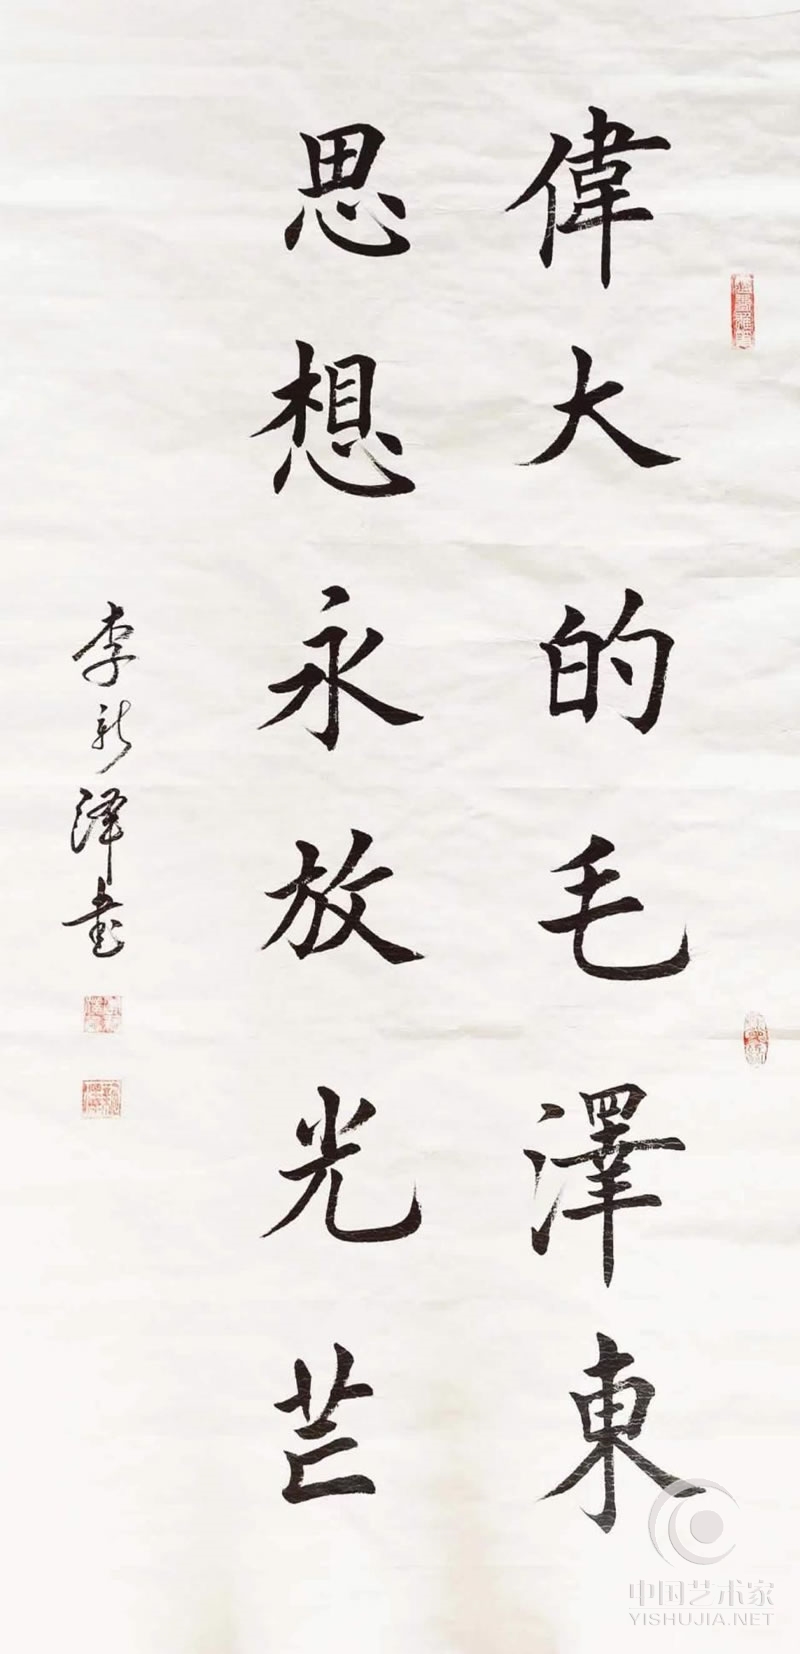 偉大的毛澤東
思想永放光芒
李新泽书
中国艺术家
YISHUJIA.NET